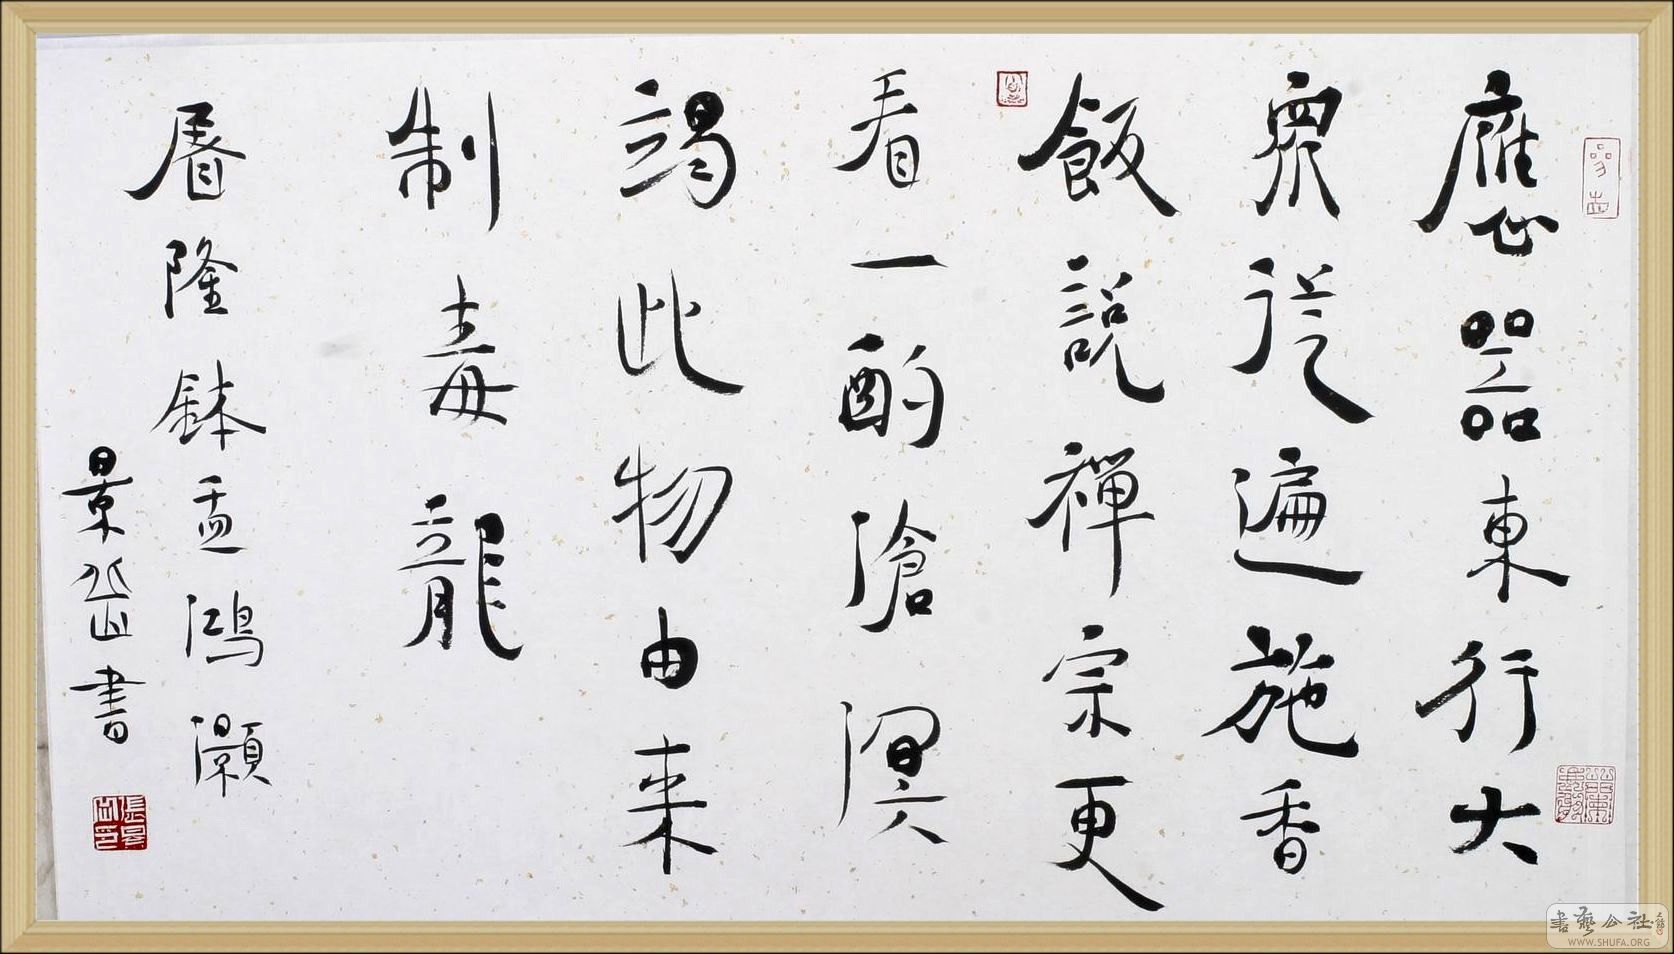 應器東行大
衆從遍施香
飯説禪宗更
看一酌滄溟
竭此物由来
制毒龍
唇隆鉢盂鴻灝
景岳書
書藝公社
WWW.SHUFA.ORG